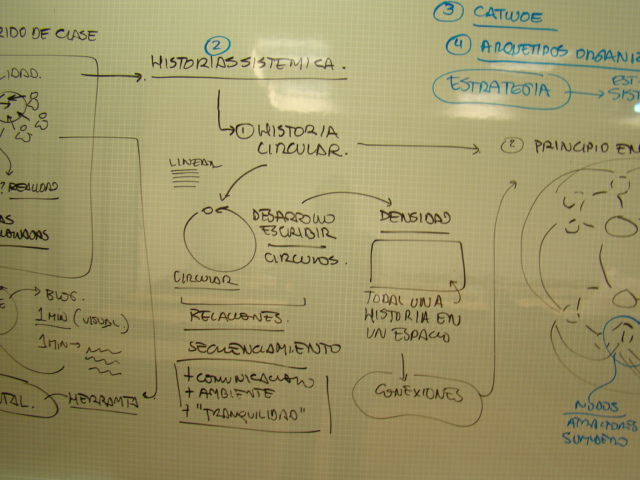 RIDO DE CLASE
LIDAD.
? REALIDAD
AS
BLOG.
1 MIN (VISUAL)
1 MIN →
TAL.
HERRAMTA
②
HISTORIAS SISTEMICA.
① HISTORIA
CIRCULAR.
LINEAR
CIRCULAR
DESARROLLO
ESCRIBIR
CIRCULOS.
RELACIONES.
SECUENCIAMIENTO
+ COMUNICACION
+ AMBIENTE
+ "TRANQUILIDAD"
DENSIDAD
TODA UNA
HISTORIA EN
UN ESPACIO
CONEXIONES
③ CATWOE
④ ARQUETIPOS ORGANIZ
ESTRATEGIA
EST
SIST
② PRINCIPIO EN
NODOS
ATRACTORES
SUMIDERO